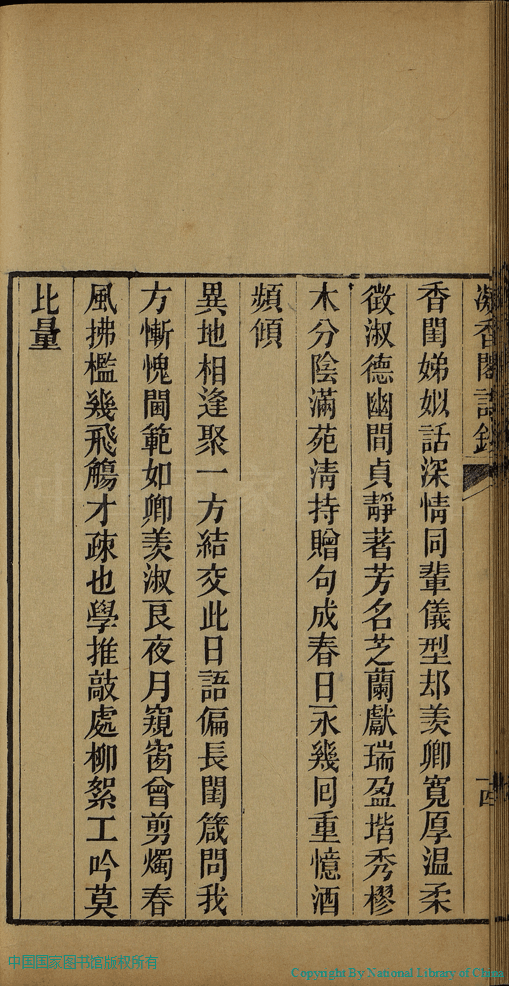 凝香閣詩鈔
十四
香閨娣姒話深情同輩儀型却羨卿寬厚温柔
徵淑德幽閒貞靜著芳名芝蘭獻瑞盈堦秀樛
木分陰滿苑清持贈句成春日永幾回重憶酒
頻傾
異地相逢聚一方結交此日語偏長閨箴問我
方慚愧閫範如卿羨淑良夜月窺窗曾剪燭春
風拂檻幾飛觴才疎也學推敲處柳絮工吟莫
比量
中国国家图书馆版权所有
Copyright By National Library of China